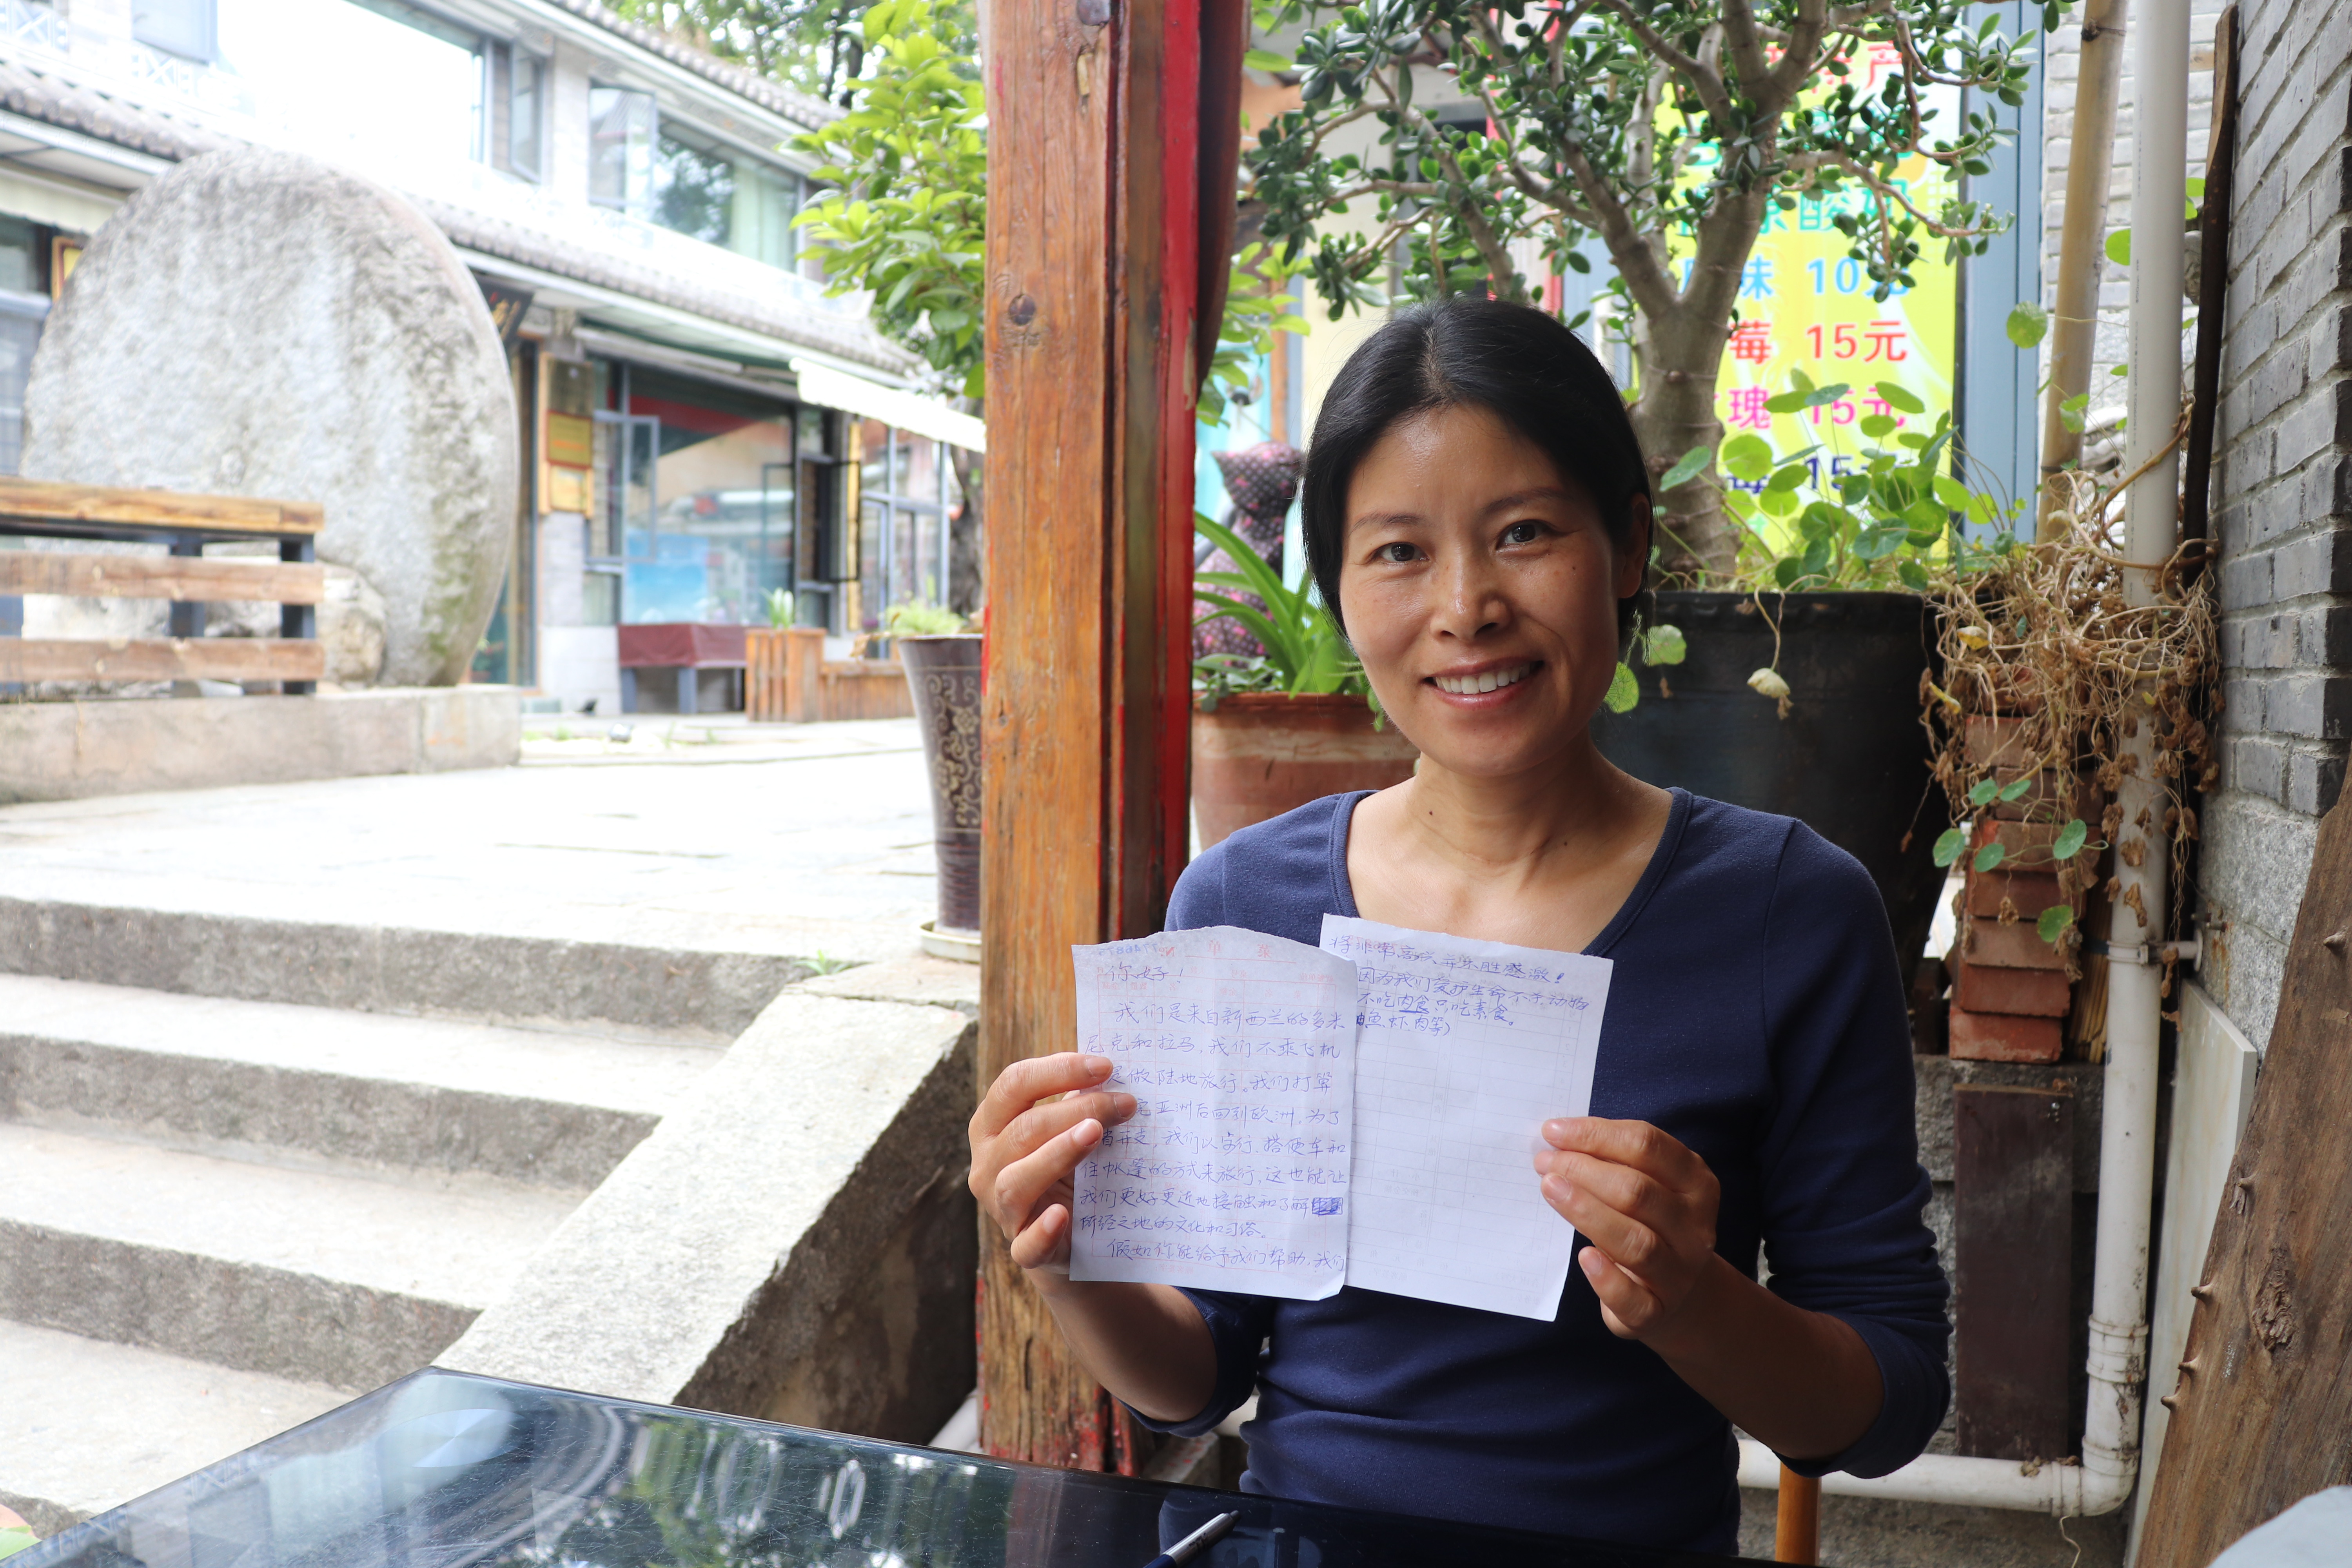 你好！
我们是来自新西兰的多米
尼克和拉马，我们不乘飞机
是做陆地旅行。我们打算
完亚洲后回到欧洲，为了
省开支，我们以步行、搭便车和
住帐篷的方式来旅行，这也能让
我们更好更近地接触和了解
所经之地的文化和习俗。
假如你能给予我们帮助，我们
将非常高兴并不胜感激！
因为我们爱护生命不杀动物
不吃肉食只吃素食。
鱼虾肉等）
产
酸奶
味 10元
莓 15元
瑰 15元
莓 15元